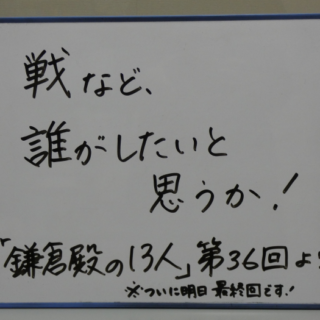 戦など、
誰がしたいと
思うか!
「鎌倉殿の13人」第36回より
※ついに明日最終回です!